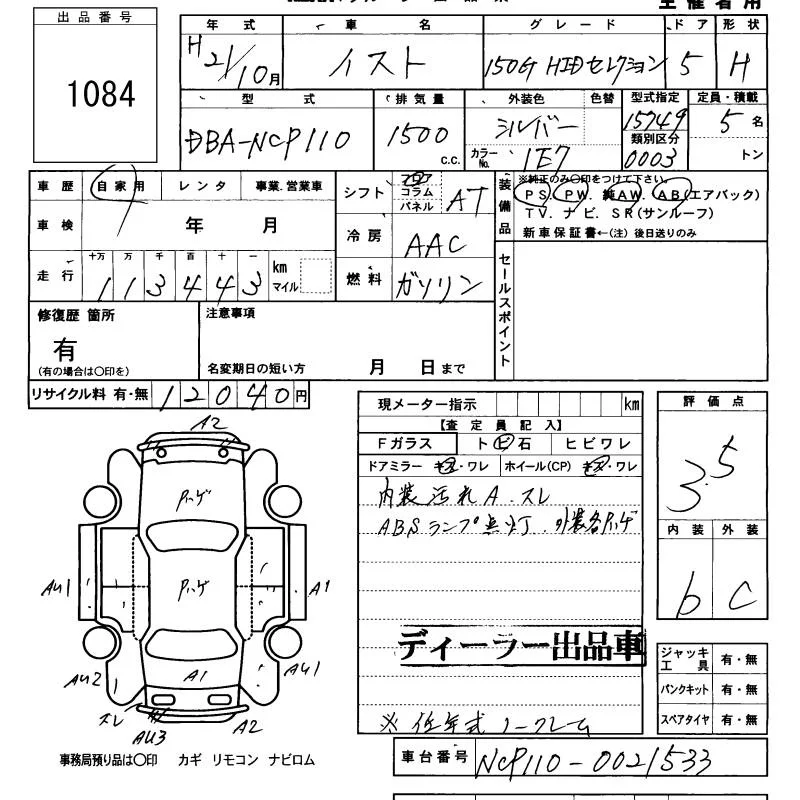 出品番号
1084
年式 車名 グレード ドア 形状
H21/10月 イスト 150G HIDセレクション 5 H
型式 排気量 外装色 色替 型式指定 定員・積載
DBA-NCP110 1500 C.C. シルバー 15749 5名
カラーNo. 1E7 類別区分 0003 トン
車歴 自家用 レンタ 事業.営業車
シフト フロア コラム パネル AT
装備品 ※純正のみ〇印をつけて下さい。
PS. PW. 純AW. AB(エアバック)
TV. ナビ. SR(サンルーフ)
新車保証書←(注) 後日送りのみ
車検 年 月
冷房 AAC
走行 十万 万 千 百 十 一 km マイル
113443
燃料 ガソリン
セールスポイント
修復歴 箇所
有
(有の場合は〇印を)
注意事項
名変期日の短い方 月 日まで
リサイクル料 有・無 12040円
現メーター指示 km
【査定員記入】
Fガラス トビ石 ヒビワレ
ドアミラー キズ・ワレ ホイール(CP) キズ・ワレ
内装汚れA.スレ
ABSランプ点灯.外装各ハゲ
ディーラー出品車
※任年式ノークレーム
評価点
3.5
内装 外装
b C
ジャッキ 工具 有・無
パンクキット 有・無
スペアタイヤ 有・無
A2
ハゲ
ハゲ
AU1 A1
AU2 A1 AU1
スレ AU3 A2
事務局預り品は〇印 カギ リモコン ナビロム
車台番号 NCP110-0021533